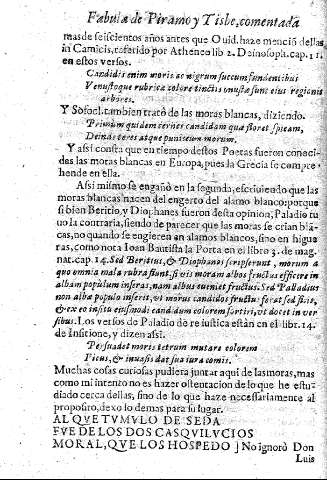 Fabula de Piramo y Tisbe, comentada
mas de seiscientos años antes que Ouid. haze menciõ dellas
in Camicis, referido por Atheneo lib 2. Deinosoph. cap. 11.
en estos versos.
Candidis enim moris ac nigrum succum fundentibui
Venustoque rubrica colore tinctis onustæ sunt eius regionis
arbores.
Y Sofocl. tambien tratò de las moras blancas, diziendo.
Primum quidem cernes candidam qua floret spicam,
Deinde teres atque puniceum morum.
Y assi consta que en tiempo destos Poetas fueron conocidas
las moras blancas en Europa, pues la Grecia se compre
hende en ella.
Assi mismo se engañò en la segunda, escriuiendo que las
moras blancas nacen del engerto del alamo blanco: porque
si bien Beritio, y Diophanes fueron desta opinion, Paladio tu
uo la contraria, siendo de parecer que las moras se crian blãcas,
no quando se engieren en alamos blancos, sino en higueras,
como nota Ioan Bautista la Porta en el libre 3. de mag.
nat. cap. 14. Sed Beritius, & Diophanes scripserunt, morum a
quo omnia mala rubra fiunt, si vis moram albos fructus efficere in
albam populum inseras, nam albus eueniet fructus. Sed Palladius
non alba populo inserit, vt morus candidos fructus ferat sed ficu,
& ex eo insitu eiusmodi candidum colorem sortiri, vt docet in versibus.
Los versos de Paladio de re justica estàn en el lib. 14.
de Insitione, y dizen assi.
Persuadet moris tetrum mutare colorem
Ficus, & inuasis dat sua iura comis.
Muchas cosas curiosas pudiera juntar aqui de las moras, mas
como mi intento no es hazer ostentacion de lo que he estudiado
cerca dellas, sino de lo que haze necessariamente al
proposito, dexolo demas para su lugar.
AL QVE TVMVLO DE SEDA
FVE DE LOS DOS CASQVILVCIOS
MORAL, QVE LOS HOSPEDO ] No ignorò Don
Luis